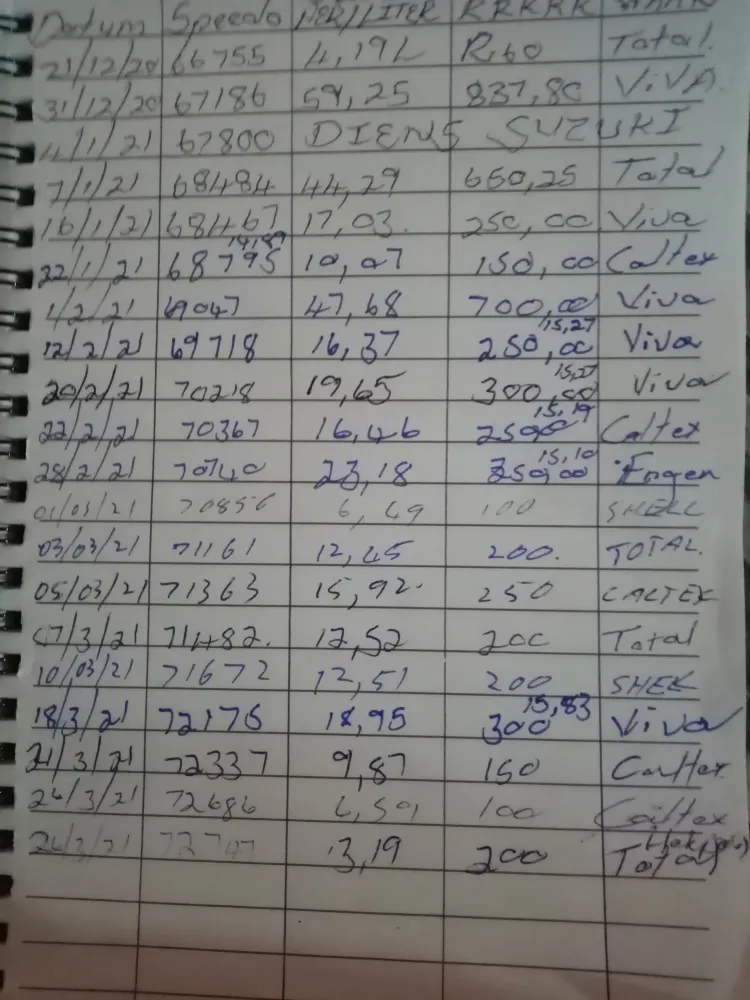 Datum Speedo PER/LITER RRRRR
21/12/20 66755 4,19L R60 Total.
31/12/20 67186 59,25 837,80 VIVA.
4/1/21 67800 DIENS SUZUKI
7/1/21 68484 44,29 650,25 Total
16/1/21 68467 17,03. 250,00 Viva
14,89
22/1/21 68795 10,07 150,00 Caltex
1/2/21 69047 47,68 700,00 Viva
15,27
12/2/21 69718 16,37 250,00 Viva
15,27
20/2/21 70218 19,65 300,00 Viva
15,19
22/2/21 70367 16,46 2500 Caltex
15,10
28/2/21 70740 23,18 350,00 Engen
01/03/21 70856 6,49 100 SHELL
03/03/21 71161 12,45 200. TOTAL.
05/03/21 71363 15,92. 250 CALTEX
07/3/21 71482. 12,52 200 Total
10/03/21 71672 12,51 200 SHELL
15,83
18/3/21 72176 18,95 300 Viva
21/3/21 72337 9,87 150 Caltex
24/3/21 72686 6,591 100 Caltex
26/3/21 72747 13,19 200 Total